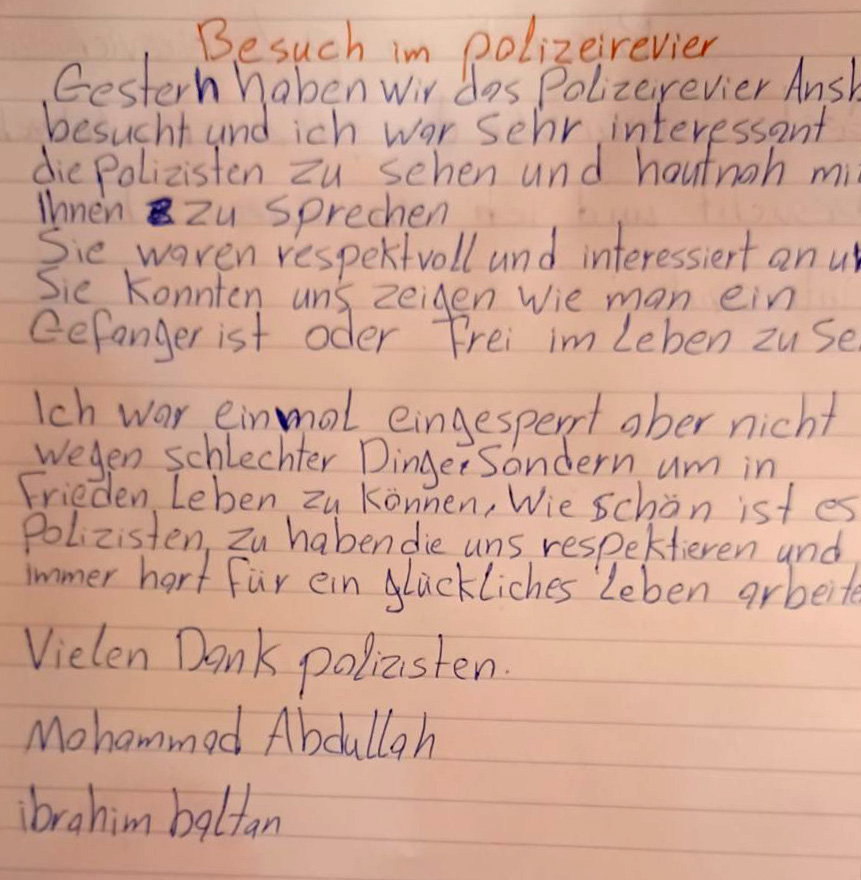 Besuch im polizeirevier
Gestern haben wir das Polizeirevier Ansb
besucht und ich war sehr interessant
die Polizisten zu sehen und hautnah mi
Ihnen zu sprechen
Sie waren respektvoll und interessiert an un
Sie Konnten uns zeigen wie man ein
Gefanger ist oder frei im Leben zu Se
Ich war einmal eingesperrt aber nicht
wegen schlechter Dinge, Sondern um in
Frieden Leben zu können, Wie schön ist es
Polizisten, zu haben die uns respektieren und
immer hart für ein glückliches Leben arbeite
Vielen Dank polizisten.
Mohammad Abdullah
ibrahim baltan